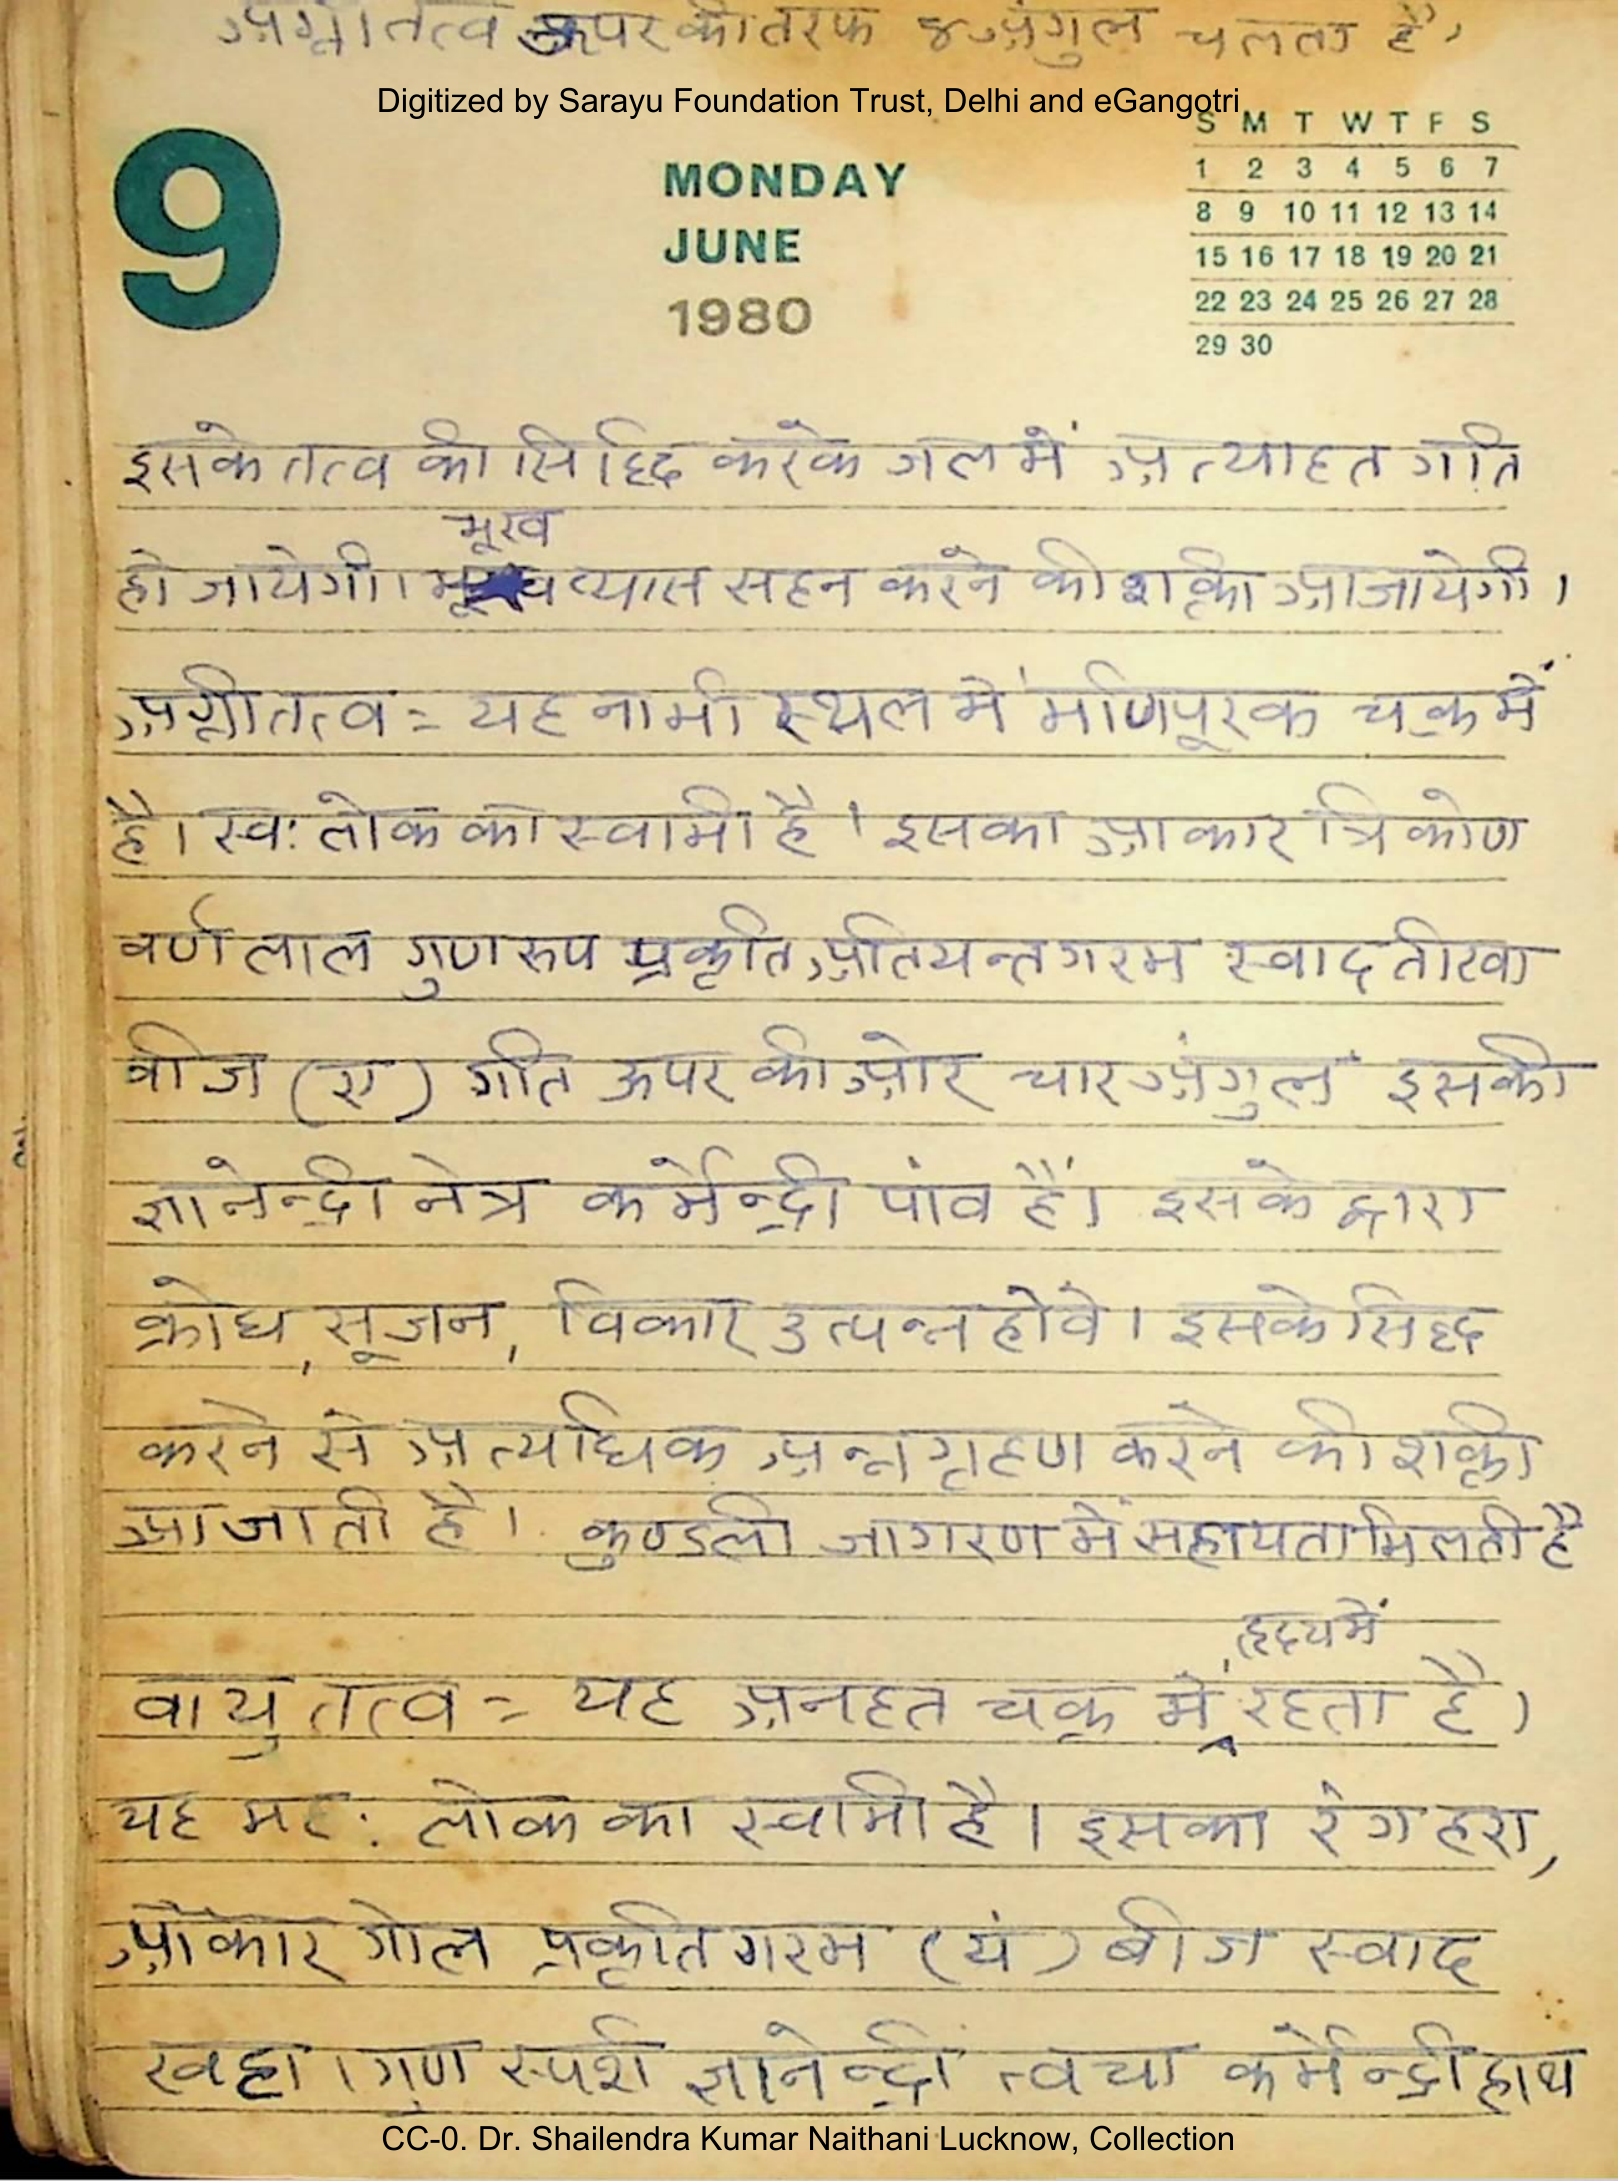 अग्नीतत्व ऊपर की तरफ ४ अंगुल चलता है,
Digitized by Sarayu Foundation Trust, Delhi and eGangotri
S M T W T F S
1 2 3 4 5 6 7
8 9 10 11 12 13 14
15 16 17 18 19 20 21
22 23 24 25 26 27 28
29 30
9
MONDAY
JUNE
1980
इसके तत्व की सिद्दि करके जल में अत्याहत गति
भूख
हो जायेगी। प्यास सहन करने की शक्ती आजायेगी।
अग्नीतत्व:= यह नाभी स्थल में मणिपूरक चक्र में
है। स्व: लोक का स्वामी है। इसका आकार त्रिकोण
वर्ण लाल गुण रुप प्रकृति अतियन्त गरम स्वाद तीखा
बीज (रं) गति ऊपर की ओर चार अंगुल इसकी
ज्ञानेन्द्री नेत्र कर्मेन्द्री पांव हैं। इसके द्वारा
क्रोध, सूजन, विकार उत्पन्न होवे। इसके सिद्द
करने से अत्याधिक अन्न गृहण करने की शक्ती
आजाती है। कुण्डली जागरण में सहायता मिलती है
हृदय में
वायु तत्व := यह अनहत चक्र में रहता है।
यह मह: लोक का स्वामी है। इसका रंग हरा,
आकार गोल प्रकृति गरम (यं) बीज स्वाद
खट्टा। गुण स्पर्श ज्ञानेन्द्री त्वचा कर्मेन्द्री हाथ
CC-0. Dr. Shailendra Kumar Naithani Lucknow, Collection